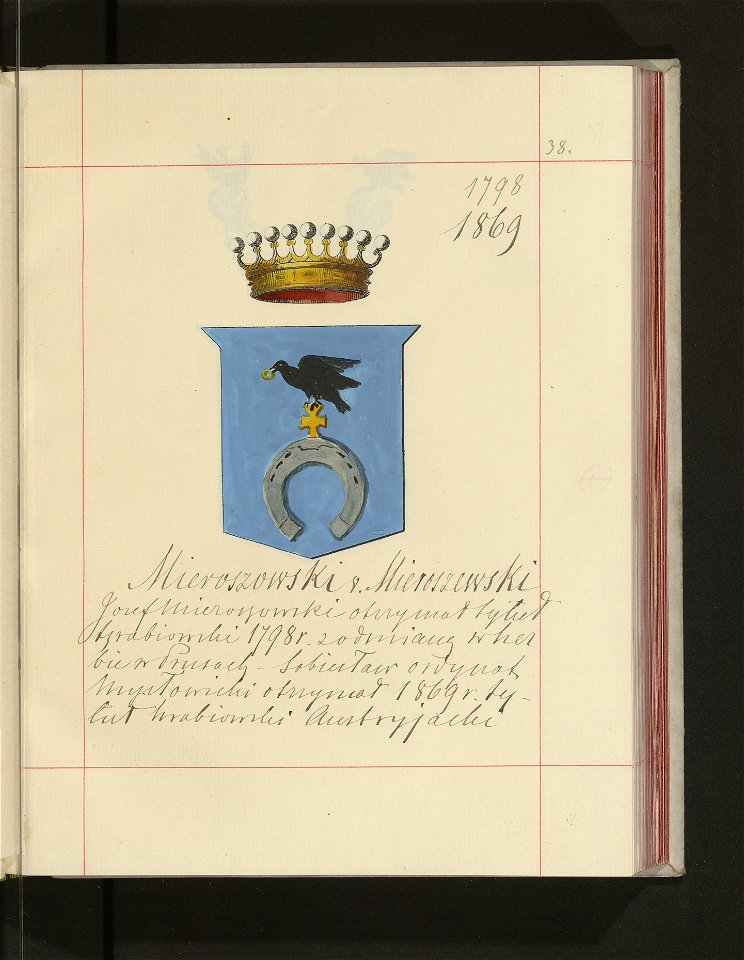 38.
1798
1869
Mieroszowski v. Mieroszewski
Józef Mieroszowski otrzymał tytuł
hrabiowski 1798 r. z odmianą w her
bie w Prusach - Sobiesław ordynat
Mysłowicki otrzymał 1869 r. ty-
tuł hrabiowski Austryjacki